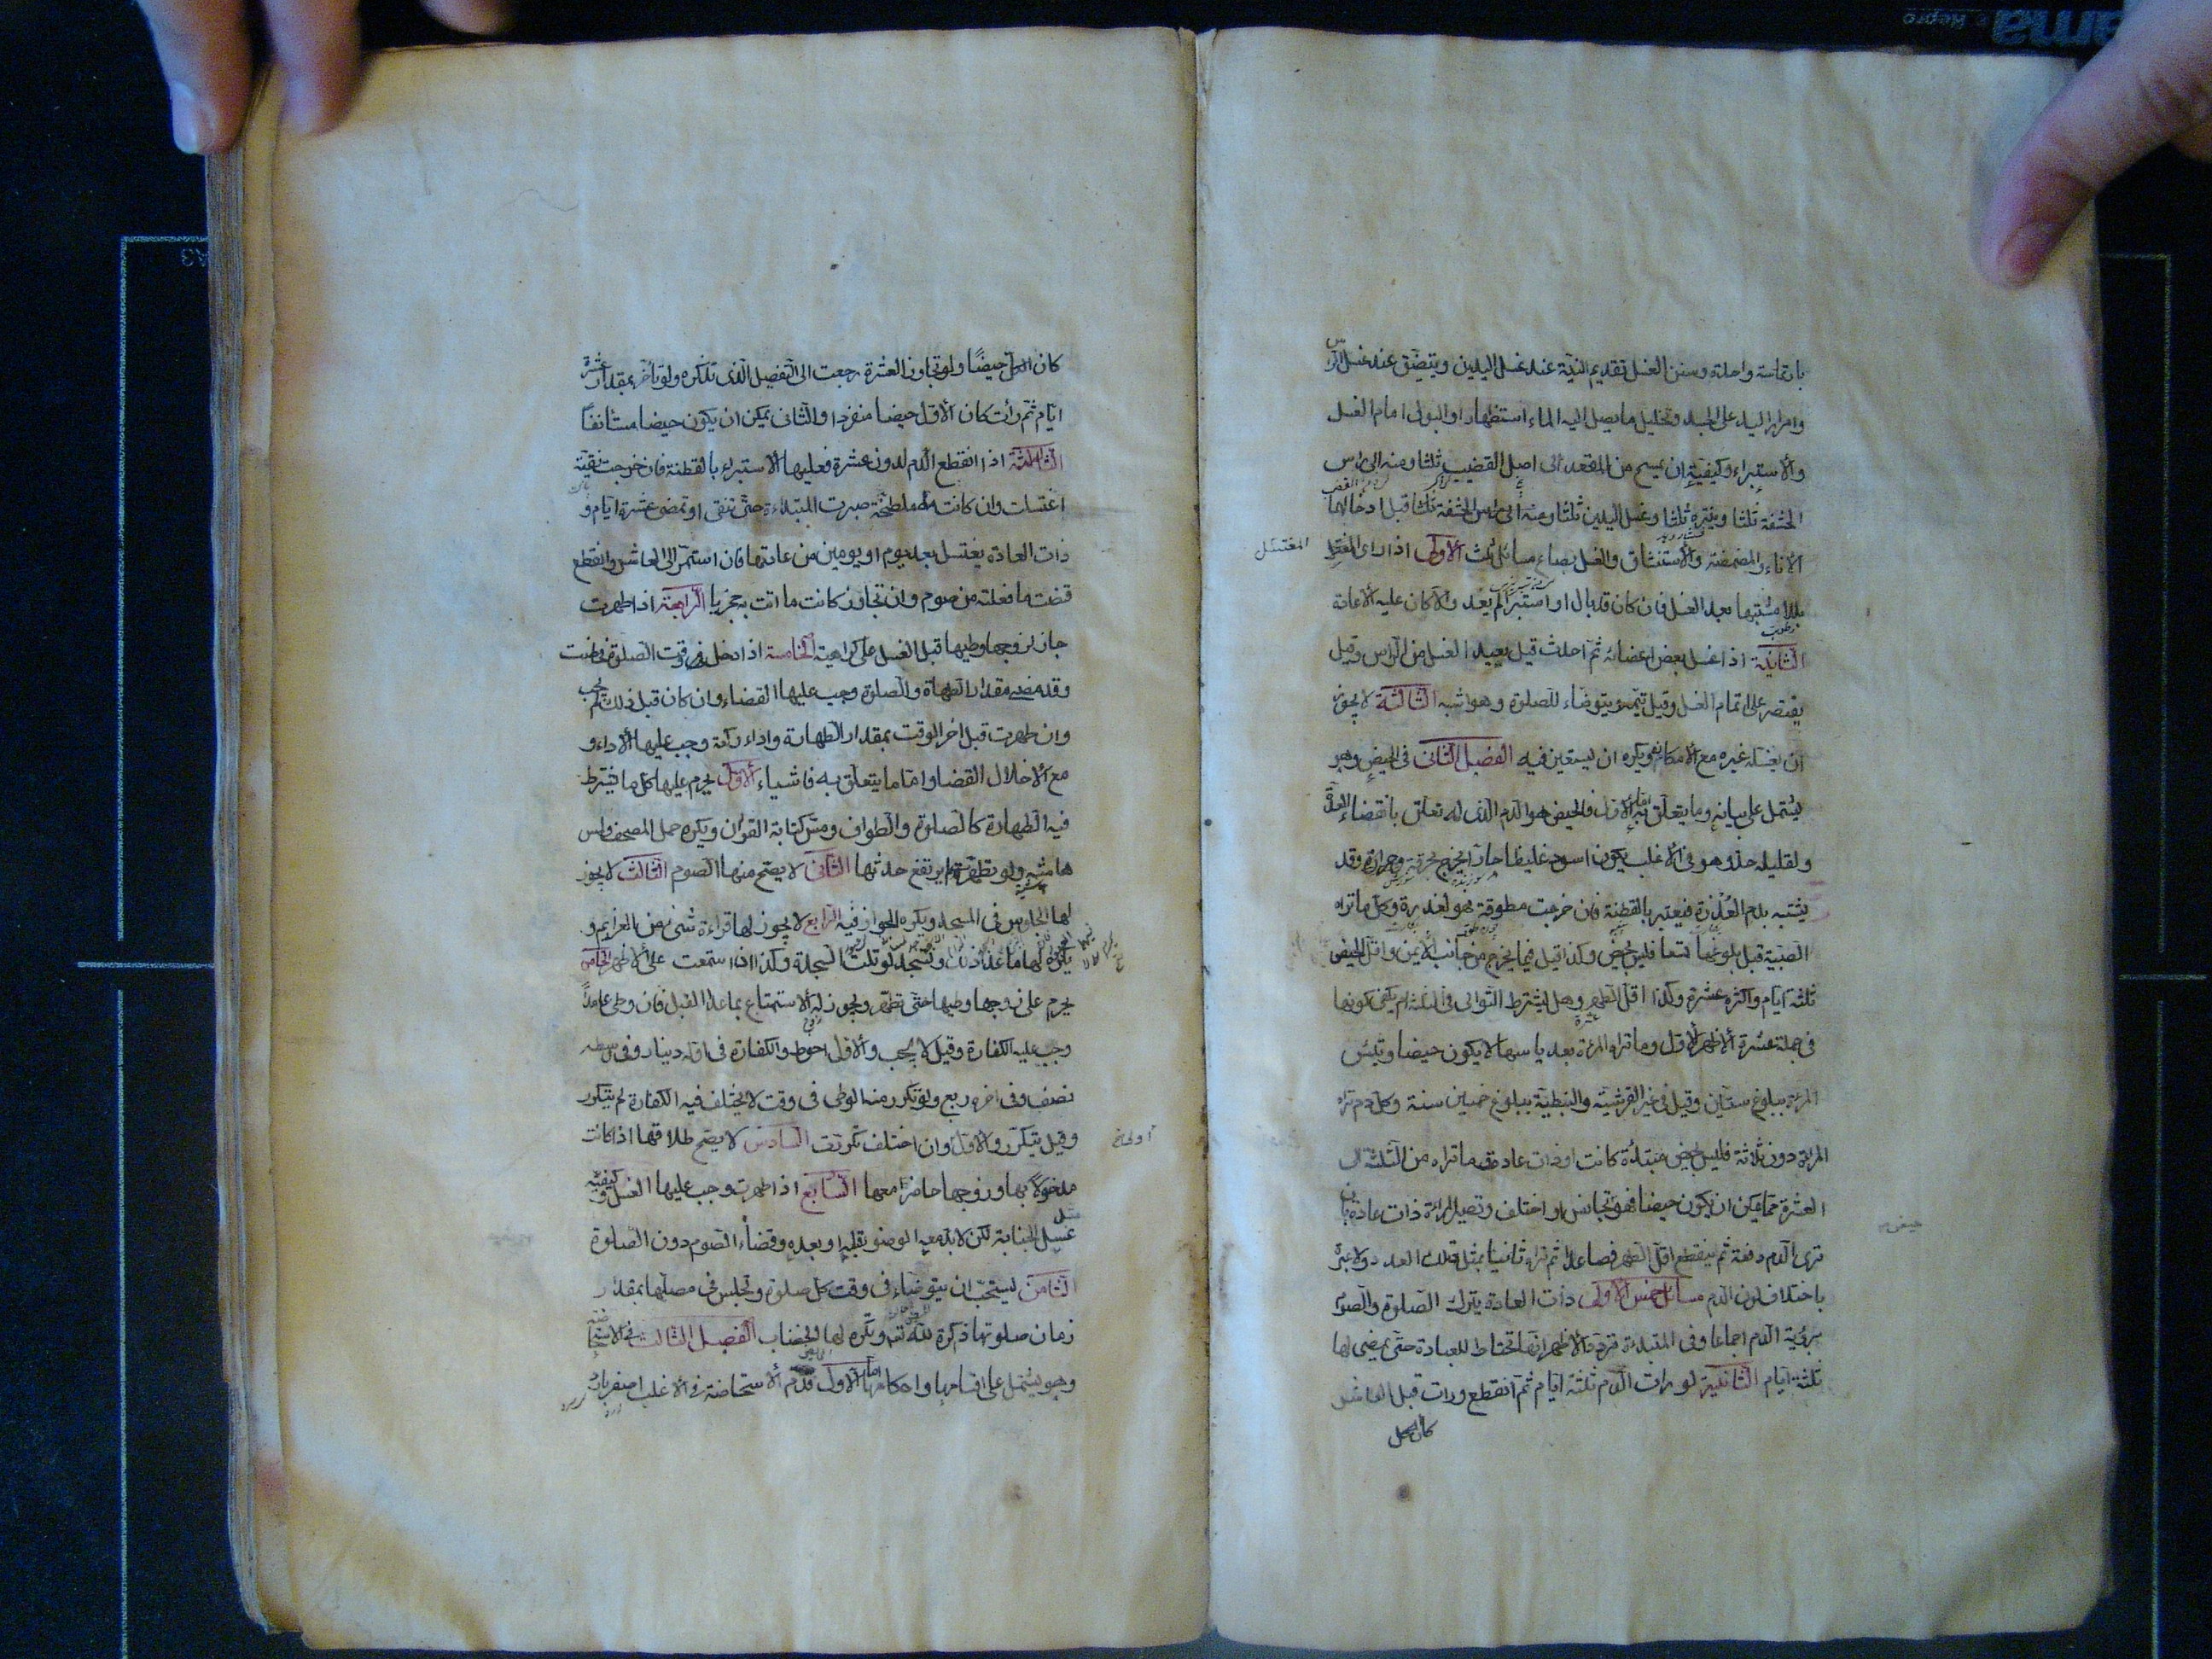 بارتماسة واحدة وسنن الغسل تقديم النية عند غسل اليدين ويتضيق عند غسل الراس
وامرار اليد على الجسد وتخليل ما يصل اليه الماء استظهارا والبول امام الغسل
والاستبراء وكيفيته ان يمسح من المقعد الى اصل القضيب ثلثا ومنه الى راس
الحشفة ثلثا وينتره ثلثا وغسل اليدين ثلثا قبل ادخالهما
الاناء والمضمضة والاستنشاق والغسل بصاع مسائل ثلث الاولى اذا راى المغتسل
المغتسل
بللا مشتبها بعد الغسل فان كان قد بال او استبرأ لم يعد والا كان عليه الاعادة
الثانية اذا غسل بعض اعضائه ثم احدث قيل يعيد الغسل من الراس وقيل
يقتصر على اتمام الغسل وقيل يتمه ويتوضاء للصلوة وهو اشبه الثالثة لا يجوز
ان يغسله غيره مع الامكان ويكره ان يستعين فيه الفصل الثانى فى الحيض وهو
يشتمل على بيانه وما يتعلق به اما الاول فالحيض هو الدم الذى له تعلق بانقضاء العدة
ولقليله حد وهو فى الاغلب يكون اسود غليظا حارا يخرج بحرقة وحرارة وقد
يشتبه بدم العذرة فيعتبر بالقطنة فان خرجت مطوقة فهو لعذرة وكل ما تراه
الصبية قبل بلوغها تسعا فليس بحيض وكذا قيل فيما يخرج من جانب الايمن واقل الحيض
ثلثة ايام واكثره عشرة وكذا اقل الطهر وهل يشترط التوالى فى الثلثة ام يكفى كونها
فى جملة عشرة الاظهر الاول وما تراه المرءة بعد ياسها لا يكون حيضا وتيئس
المرءة ببلوغ ستين وقيل فى غير القرشية والنبطية ببلوغ خمسين سنة وكل دم تراه
المرءة دون ثلاثة فليس بحيض مبتدئة كانت او ذات عادة وما تراه من الثلثة الى
العشرة مما يمكن ان يكون حيضا فهو تجانس او اختلف وتصير المراءة ذات عادة بان
حيض
ترى الدم دفعة ثم ينقطع اقل الطهر فصاعدا ثم تراه ثانيا بمثل تلك العدد ولا عبرة
باختلاف لون الدم مسائل خمس الاولى ذات العادة يترك الصلوة والصوم
برؤية الدم اجماعا وفى المبتدءة تردد الاظهر انها تحتاط للعبادة حتى يمضى لها
ثلثة ايام الثانية لو رات الدم ثلثة ايام ثم انقطع ورات قبل العاشر
كان الكل
كان الكل حيضا ولو تجاوز العشرة رجعت الى التفصيل الذى نذكره ولو تاخر بمقدار عشرة
ايام ثم رأت كان الاول حيضا منفردا والثانى يمكن ان يكون حيضا مستأنفا
الثالثة اذا انقطع الدم لدون عشرة فعليها الاستبراء بالقطنة فان خرجت نقية
اغتسلت وان كانت ملطخة صبرت المبتدءة حتى تنقى او تمضى عشرة ايام و
ذات العادة يغتسل بعد يوم او يومين من عادتها فان استمر الى العاشر وانقطع
قضت ما فعلته من صوم وان تجاوز كانت ما اتت به مجزيا الرابعة اذا طهرت
جاز لزوجها وطيها قبل الغسل على كراهية الخامسة اذا دخل وقت الصلوة فحاضت
وقد مضى مقدار الطهارة والصلوة وجب عليها القضاء وان كان قبل ذلك لم يجب
وان طهرت قبل اخر الوقت بمقدار الطهارة واداء ركعة وجب عليها الاداء و
مع الاخلال القضا واما ما يتعلق به فاشياء الاول يحرم عليها كل ما يشترط
فيه الطهارة كالصلوة والطواف ومس كتابة القران ويكره حمل المصحف ولمس
هامشه ولو تطهرت لم يرتفع حدثها الثانى لا يصح منها الصوم الثالث لا يجوز
لها الجلوس فى المسجد ويكره الجواز فيه الرابع لا يجوز لها قراءة شىء من العزايم و
يكره لها ما عدا ذلك وتسجد لو تلت السجدة وكذا اذا استمعت على الاظهر الخامس
يحرم على زوجها وطيها حتى تطهر ويجوز له الاستمتاع بما عدا القبل فان وطى عامدا
وجب عليه الكفارة وقيل لا يجب والاول احوط والكفارة فى اوله دينار وفى وسطه
نصف وفى اخره ربع ولو تكرر منه الوطى فى وقت لا يختلف فيه الكفارة لم يتكرر
وقيل يتكرر والاول وان اختلف تكررت السادس لا يصح طلاقها اذا كانت
مدخولا بها وزوجها حاضرا معها السابع اذا طهرت وجب عليها الغسل وكيفيته
غسل الجنابة لكن لابد معه الوضو قبله او بعده وقضاء الصوم دون الصلوة
الثامن يستحب ان يتوضاء فى وقت كل صلوة وتجلس فى مصلاها بمقدار
زمان صلوتها ذاكرة لله تعم ويكره لها الخضاب الفصل الثالث فى الاستحاضة
وهو يشتمل على اقسامها واحكامها اما الاول فدم الاستحاضة فى الاغلب اصفر بارد